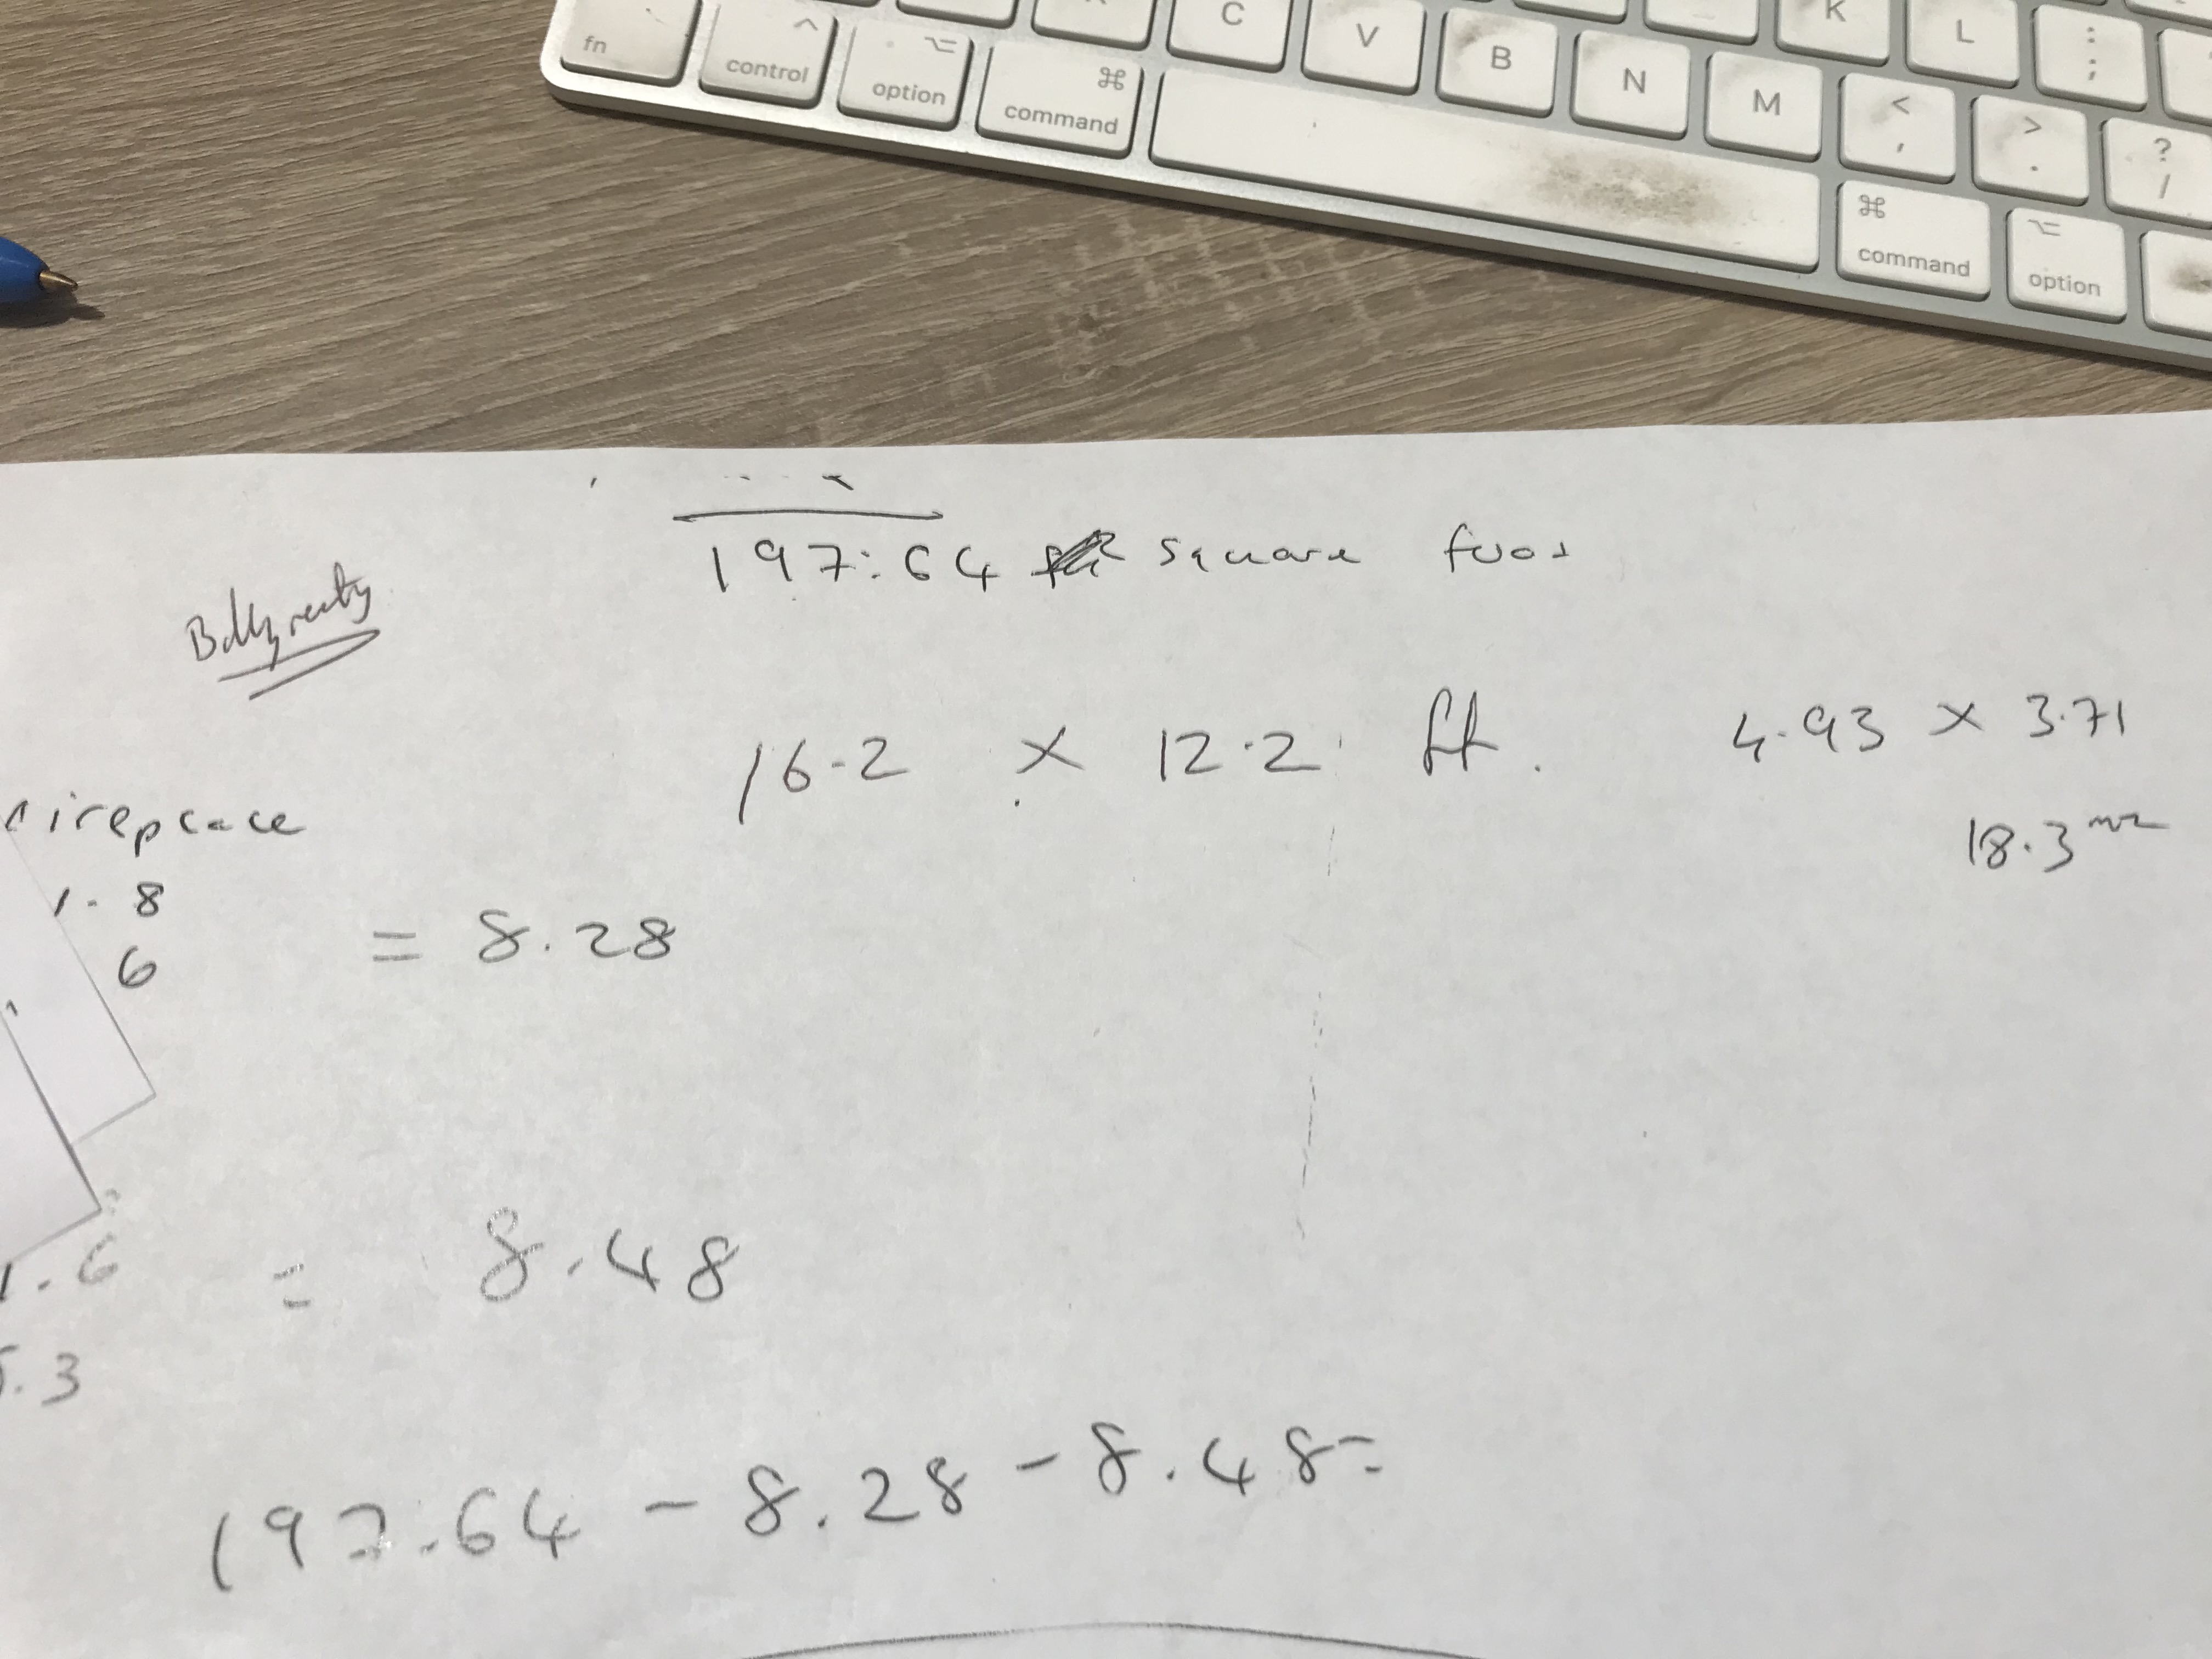 fn control option command C V B N M < , > . ? / K L : ;
command option
197.64 square foot
16.2 x 12.2 ft. 4.93 x 3.71
18.3 m2
ireplace
1.8
6 = 8.28
1.6 = 8.48
.3
197.64 - 8.28 - 8.48 =